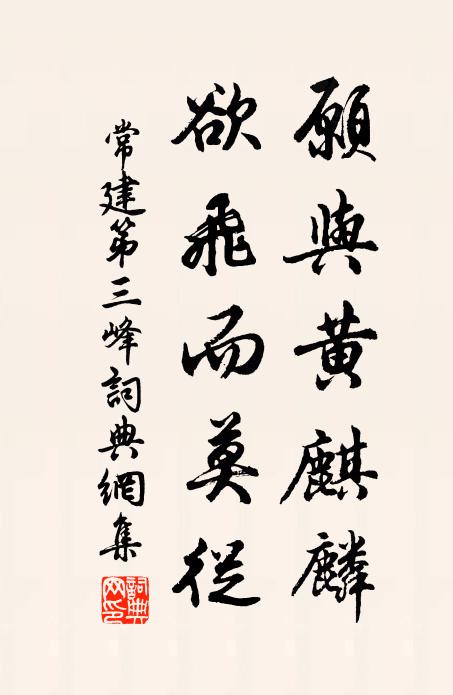 願與黃麒麟
欲飛而莫從
常建第三峰詞典網集
詞典網印